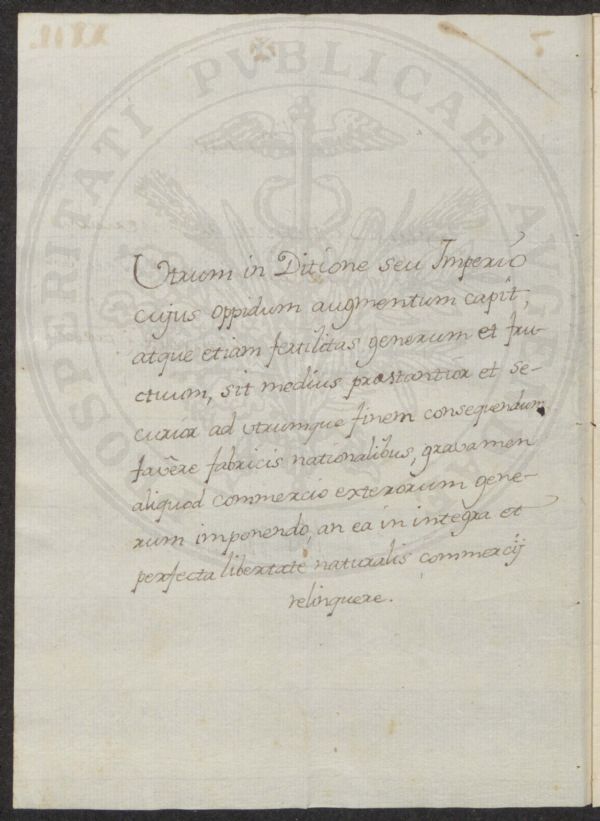 PROSPERITATI PVBLICAE AVGENDA
Utrum in Ditione seu Imperio
cujus oppidum augmentum capit,
atque etiam fertilitas generum et fru-
ctuum, sit medius præstantior et se-
curior ad utrumque finem consequendum,
favêre fabricis nationalibus, gravamen
aliquod commercio exterorum gene-
rum imponendo, an ea in integra et
perfecta libertate naturalis commercij
relinquere.